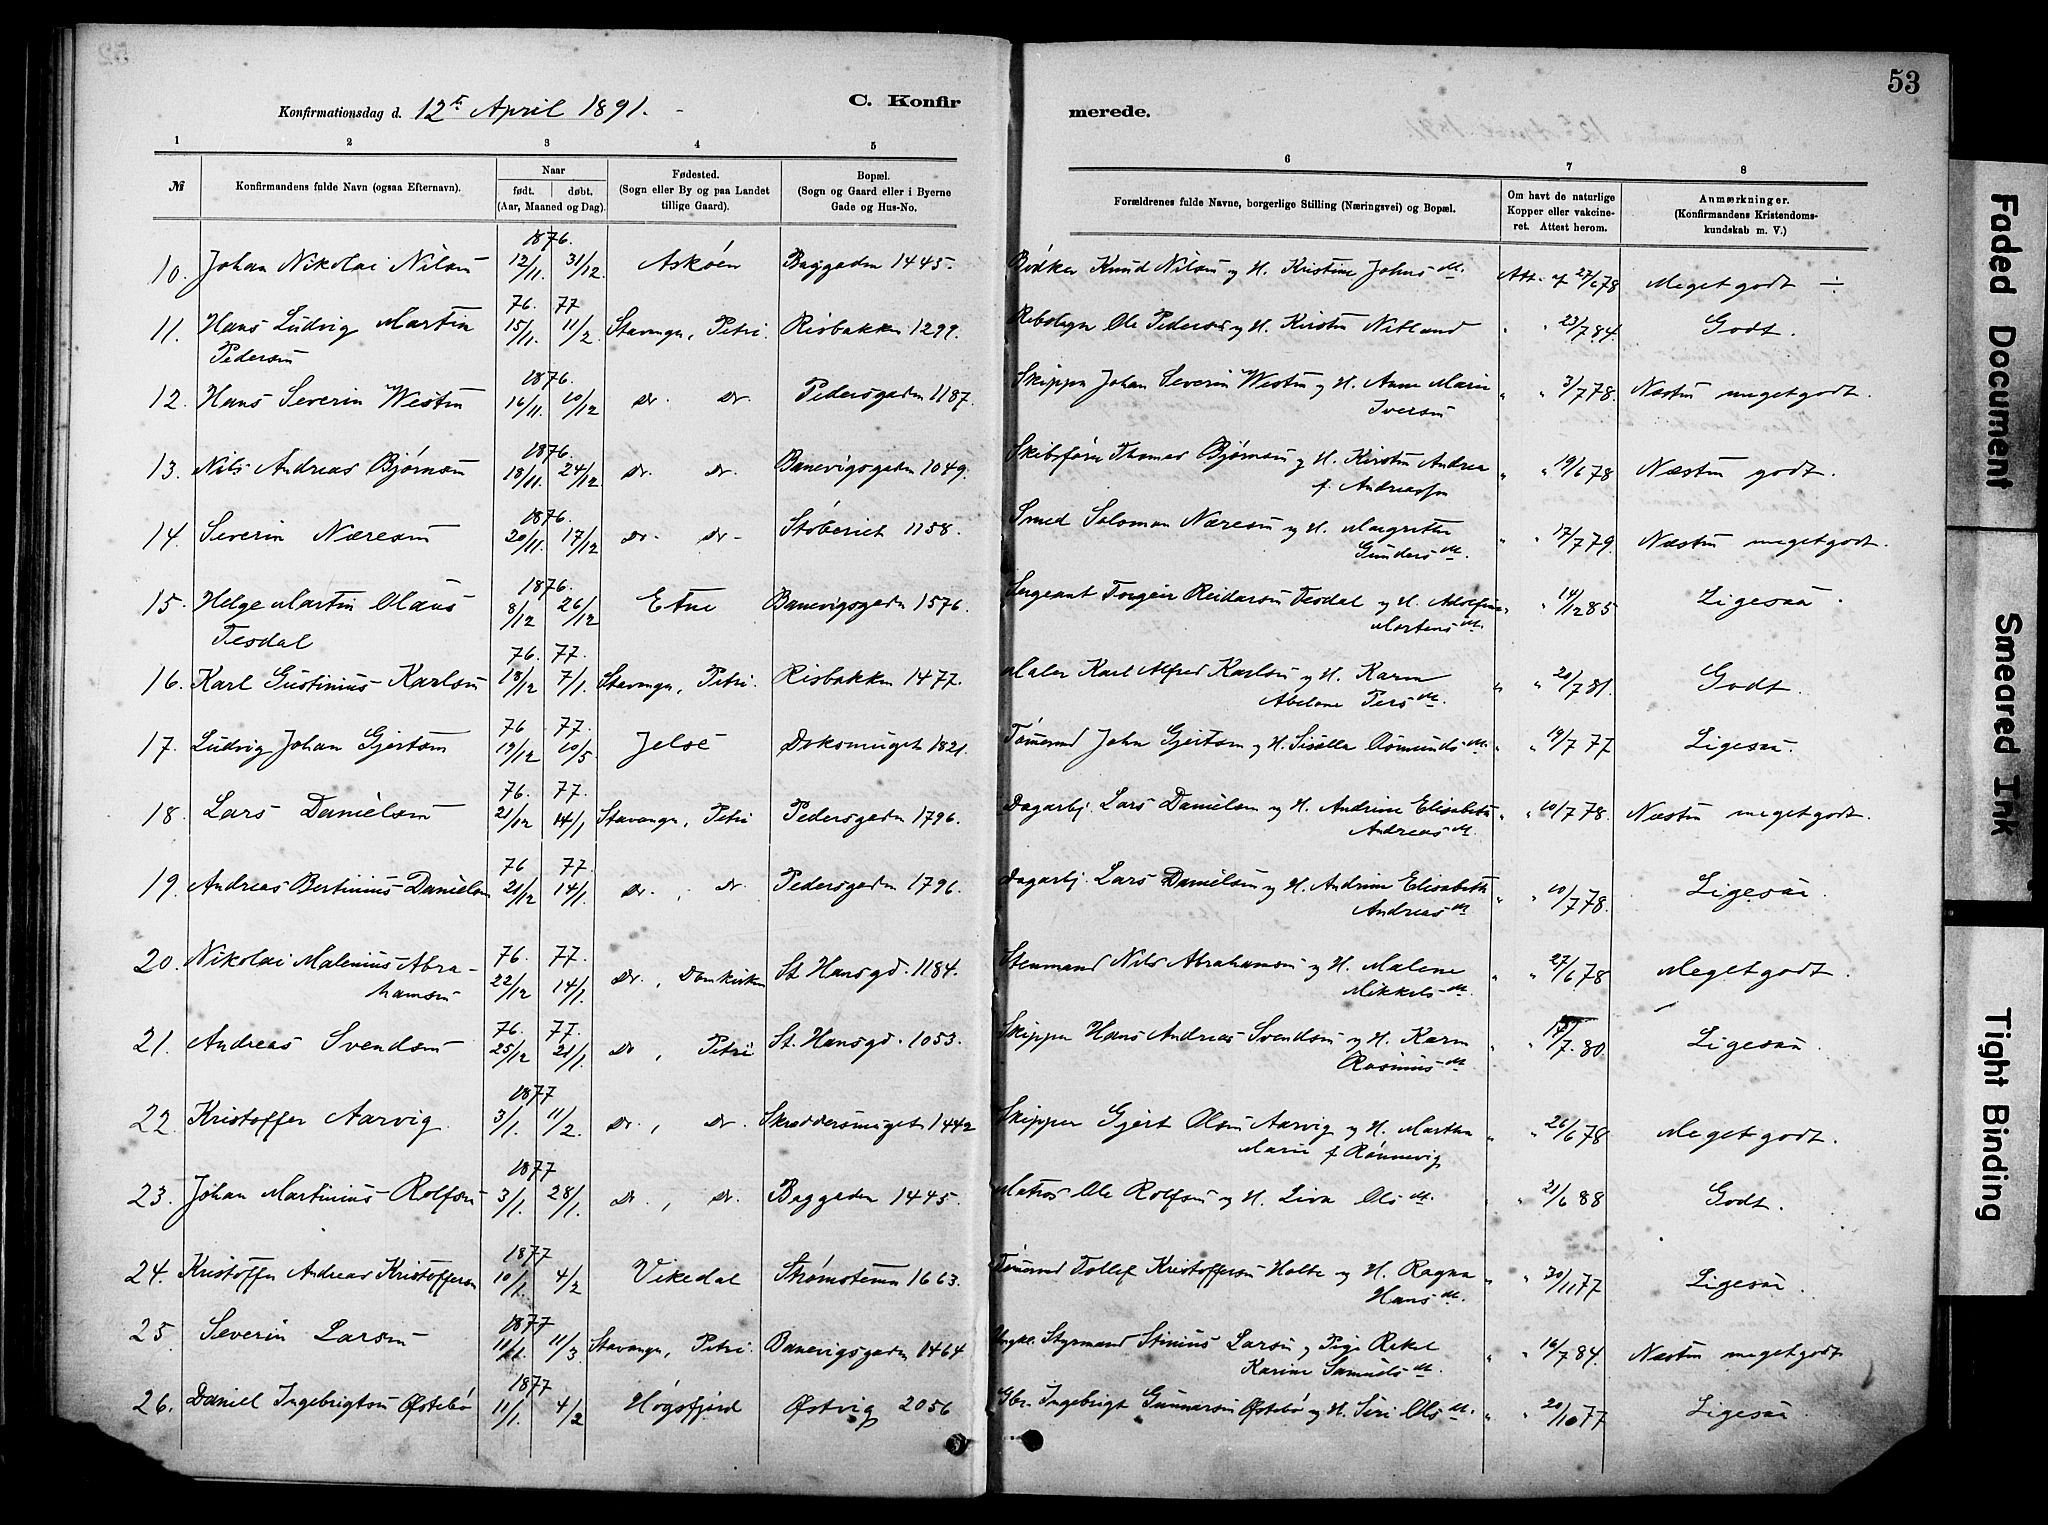 53
Konfirmationsdag d. 12te April 1891.
C. Konfirmerede.
1 2 3 4 5 6 7 8
№
Konfirmandens fulde Navn (ogsaa Efternavn).
Naar
født. døbt.
(Aar, Maaned og Dag).
Fødested.
(Sogn eller By og paa Landet
tillige Gaard).
Bopæl.
(Sogn og Gaard eller i Byerne
Gade og Hus-No.
Forældrenes fulde Navne, borgerlige Stilling (Næringsvei) og Bopæl.
Om havt de naturlige
Kopper eller vakcine-
ret. Attest herom.
Anmærkninger.
(Konfirmandens Kristendoms-
kundskab m. V.)
1876.
10. Johan Nikolai Nilsen 12/11. 31/12. Askøen Baggaden 1445. Bødker Knud Nilsen og H. Kristine Johns dt. Att. af 27/6 78 Meget godt ÷
76. 77
11. Hans Ludvig Martin 15/11. 11/2. Stavanger, Petri. Risbakken 1299. Rebslager Ole Pedersen og H. Kirsten Nitland " " 23/7 84. Godt.
Pedersen
1876.
12. Hans Severin Westen 16/11. 10/12 Do. Do Pedersgaden 1187. Skipper Johan Severin Westen og H. Anne Marie " " 3/7 78. Næsten meget godt.
Iversen
1876.
13. Nils Andreas Bjørnsen 18/11. 24/12 Do. Do. Banevigsgaden 1049. Skibsfører Thomas Bjørnsen og H. Kirsten Andrea " " 19/6 78 Næsten godt.
f. Andreassen
1876.
14. Severin Næresen 20/11. 17/12 Do. Do. Støberiet 1158. Smed Salomon Næresen og H. Margrethe " " 17/7 79. Næsten meget godt.
Gunders dt.
1876.
15. Helge Martin Olaus 8/12 26/12 Etne Banevigsgaden 1576. Sergeant Torgeir Reidarsen Tesdal og H. Adolfine " " 14/12 85 Ligesaa.
Tesdal Mortens dt.
76. 77.
16. Karl Gustinius Karlsen 18/12 7/1. Stavanger, Petri. Risbakken 1477. Maler Karl Alfred Karlsen og H. Karen " " 20/7 81. Godt.
Abelone Pers dt.
76 77.
17. Ludvig Johan Gjertsen 19/12 10/5 Jelse Doksmuget 1821. Tømmermd John Gjertsen og H. Siselle Osmunds dt. " " 19/7 77 Ligesaa.
76. 77.
18. Lars Danielsen 21/12 14/1 Stavanger, Petri Pedersgaden 1796. Dagarbj. Lars Danielsen og H. Andrine Elisabeth " " 10/7 78. Næsten meget godt.
Andreas dt.
76 77.
19. Andreas Bertinius Danielsen 21/12 14/1. Do. , Do. Pedersgaden 1796. Dagarbj. Lars Danielsen og H. Andrine Elisabeth " " 10/7 78. Ligesaa.
Andreas dt
76. 77.
20. Nikolai Malenius Abra- 22/12 14/1. Do. , Domkirken St. Hansgd. 1184. Stenmand Nils Abrahamsen og H. Malene " " 27/6 78 Meget godt.
hamsen Mikkels dt.
76. 77.
21. Andreas Svendsen 25/12 21/1. Do , Petri St. Hansgd. 1053. Skipper Hans Andreas Svendsen og H. Karen " " 17/7. 80. Ligesaa.
Rasmus dt
1877
22. Kristoffer Aarvig. 3/1. 11/2. Do. , Do. Skreddersmuget 1442 Skipper Gjert Olsen Aarvig og H. Martha " " 26/6 78 Meget godt.
Marie f. Rønnevig
1877
23. Johan Martinius Rolfsen 3/1. 28/1. Do. , Do. Baggaden 1445. Matros Ole Rolfsen og H. Liva Ols dt. " " 21/6 88 Godt.
1877
24. Kristoffer Andreas Kristoffersen 10/1. 4/2 Vikedal Strømstenen 1663. Tømmermd Tollef Kristoffersen Holte og H. Ragna " " 30/11 77 Ligesaa.
Hans dt.
1877
25. Severin Larsen 11/1. 11/3. Stavanger, Petri. Banevigsgaden 1464 Ungkl. Styrmand Stinius Larsen og Pige Rekel " " 16/7 84. Næsten meget godt
Karine Samuels dt.
1877
26. Daniel Ingebrigtsen Østebø 11/1. 4/2 Høgsfjord Østvig 2056 Gbr. Ingebrigt Gunnarsen Østebø og H. Seri Ols dt. " " 20/10 77 Ligesaa
Faded Document
Smeared Ink
Tight Binding